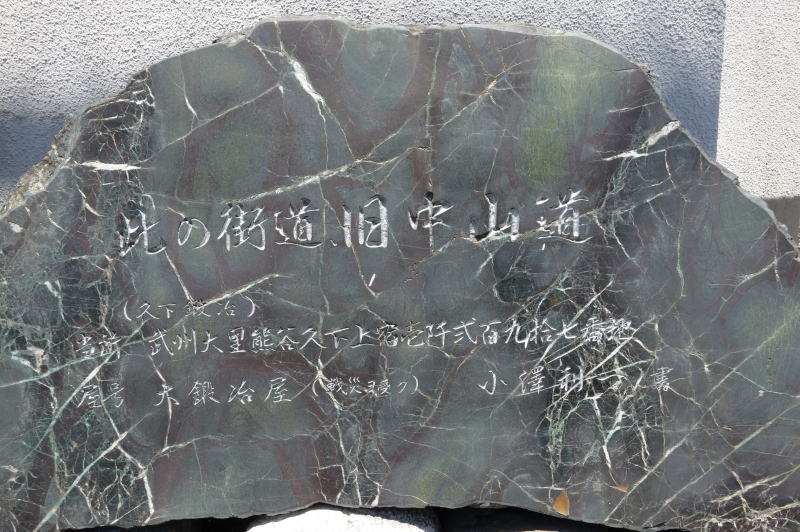 此の街道、旧中山道
(久下鍛冶)
当所 武州大里熊谷久下上宿壱阡弐百九拾七番地
屋号 大鍛冶屋 (戦災ヲ受ク) 小澤利